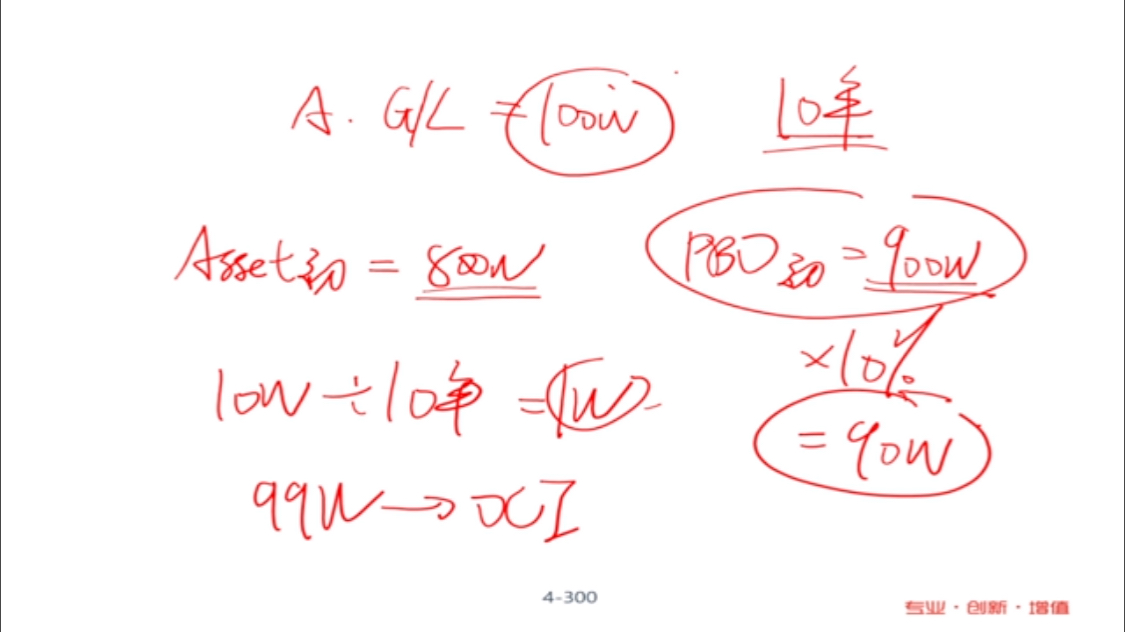 A. G/L = 100W 10年
Asset初 = 800W PBO初 = 900W
×10%
10W ÷ 10年 = 1W
= 90W
99W → OCI
4-300
专业·创新·增值